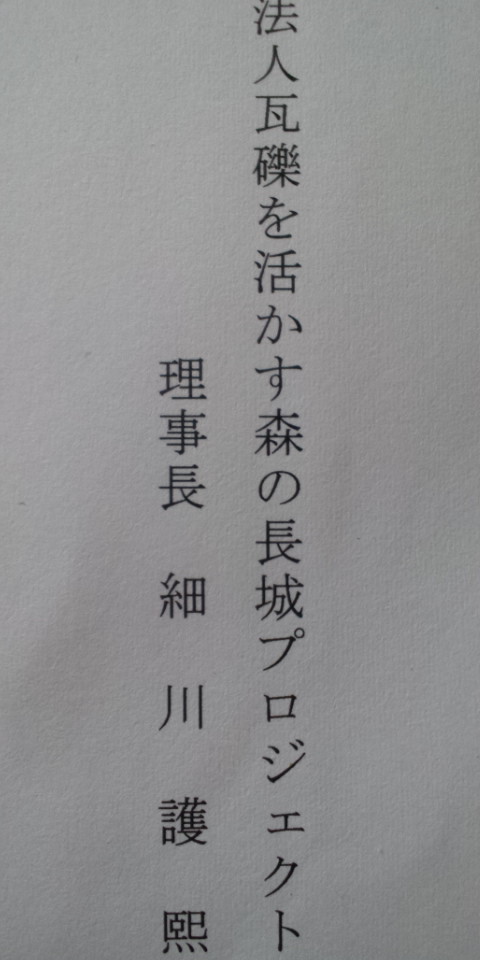 法人瓦礫を活かす森の長城プロジェクト
理事長 細川護熙